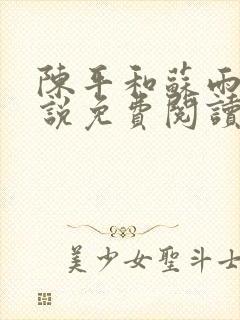 陳平和蘇雨
說免費閱讀
美少女聖斗士